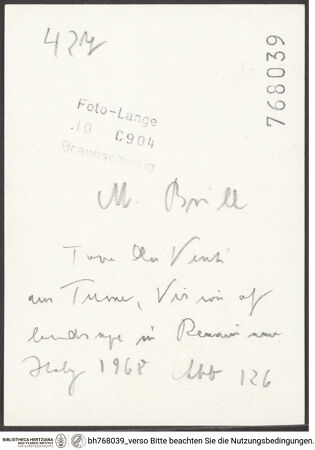 427
768039
Foto-Lange
C904
Braunschweig
M. Brill
Torre dei Venti
aus Turner, Vision of
landscape in Renaissance
Italy 1968 Abb 126
BIBLIOTHECA HERTZIANA
MAX-PLANCK-INSTITUT
FÜR KUNSTGESCHICHTE
bh768039_verso Bitte beachten Sie die Nutzungsbedingungen.